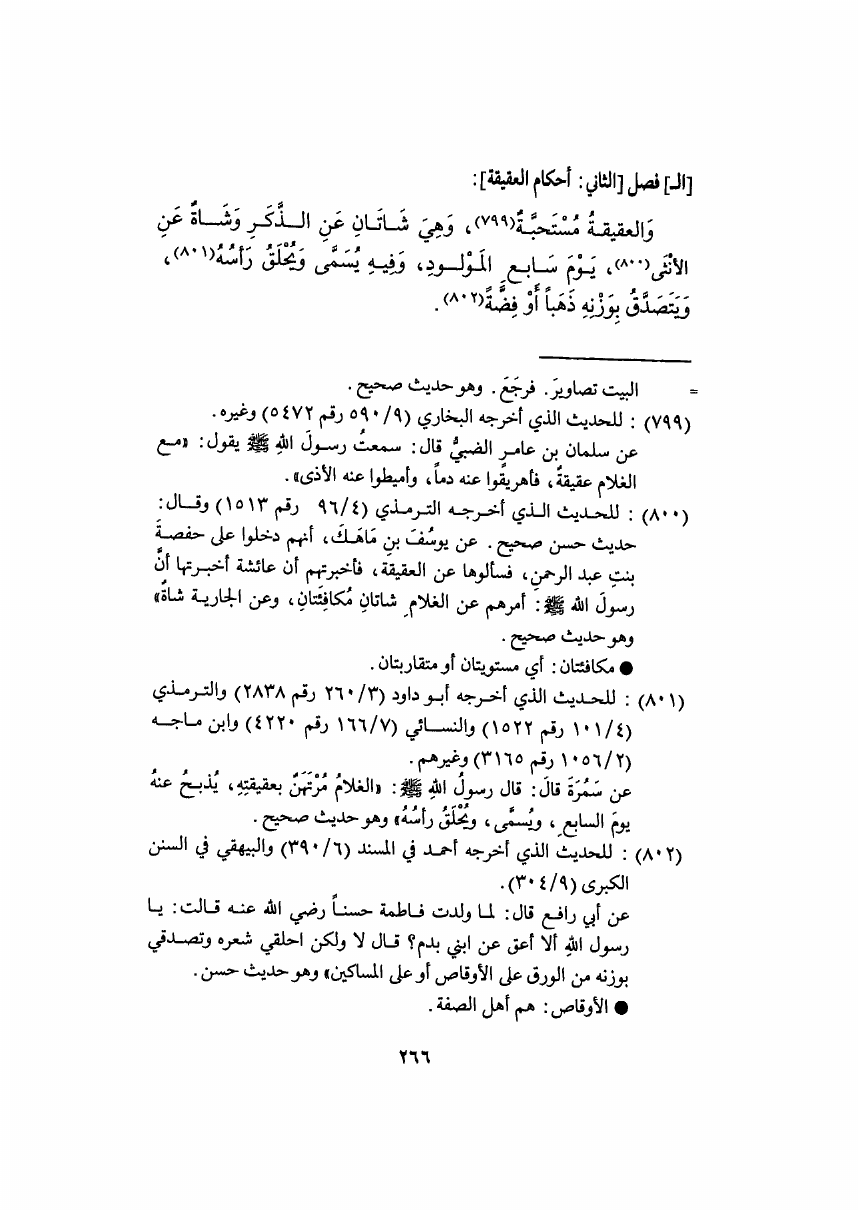 [الـ] فصل [الثاني: أحكام العقيقة]:
وَالعقيقةُ مُسْتَحبَّةٌ(٧٩٩)، وَهِيَ شَاتَانِ عَنِ الذَّكَرِ وَشَاةٌ عَنِ
الأنْثَى(٨٠٠)، يَوْمَ سَابِعِ المَوْلُودِ، وَفِيهِ يُسَمَّى وَيُحْلَقُ رَأسُهُ(٨٠١)،
وَيَتَصَدَّقُ بِوَزْنِهِ ذَهَباً أَوْ فِضَّةً(٨٠٢).
= البيت تصاويرَ. فرجَعَ. وهو حديث صحيح.
(٧٩٩) : للحديث الذي أخرجه البخاري (٥٩٠/٩ رقم ٥٤٧٢) وغيره.
عن سلمان بن عامرٍ الضبيُّ قال: سمعتُ رسولَ اللهِ ﷺ يقول: «مع
الغلام عقيقةٌ، فأهريقوا عنه دماً، وأميطوا عنه الأذى».
(٨٠٠) : للحديث الذي أخرجه الترمذي (٩٦/٤ رقم ١٥١٣) وقال:
حديث حسن صحيح. عن يوسُفَ بنِ مَاهَكَ، أنهم دخلوا على حفصةَ
بنتِ عبد الرحمنِ، فسألوها عن العقيقة، فأخبرتهم أن عائشة أخبرتها أنَّ
رسولَ الله ﷺ: أمرهم عن الغلامِ شاتانِ مُكافِئَتانِ، وعن الجارية شاةٌ»
وهو حديث صحيح.
● مكافئتان: أي مستويتان أو متقاربتان.
(٨٠١) : للحديث الذي أخرجه أبو داود (٢٦٠/٣ رقم ٢٨٣٨) والترمذي
(١٠١/٤ رقم ١٥٢٢) والنسائي (١٦٦/٧ رقم ٤٢٢٠) وابن ماجه
(١٠٥٦/٢ رقم ٣١٦٥) وغيرهم.
عن سَمُرَةَ قالَ: قال رسولُ اللهِ ﷺ: «الغلامُ مُرْتَهَنٌ بعقيقتِهِ، يُذبحُ عنهُ
يومَ السابعِ، ويُسمَّى، ويُحْلَقُ رأسُهُ» وهو حديث صحيح.
(٨٠٢) : للحديث الذي أخرجه أحمد في المسند (٣٩٠/٦) والبيهقي في السنن
الكبرى (٣٠٤/٩).
عن أبي رافع قال: لما ولدت فاطمة حسناً رضي الله عنه قالت: يا
رسول اللهِ ألا أعق عن ابني بدم؟ قال لا ولكن احلقي شعره وتصدقي
بوزنه من الورق على الأوقاص أو على المساكين» وهو حديث حسن.
● الأوقاص: هم أهل الصفة.
٢٦٦